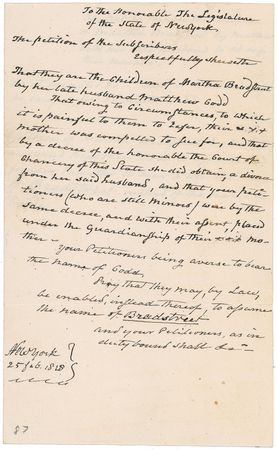 To the Honorable The Legislature
of the State of New York.
The petition of the Subscribers
Respectfully Sheweth
That they are the Children of Martha Bradstreet
by her late husband Matthew Codd
That owing to Circumstances, to which
it is painful to them to refer, their x x x
mother was compelled to sue for, and that
by a decree of the honorable the Court of
Chancery of this State she did obtain a divorce
from her said husband, and that your peti-
tioners (who are still Minors) was by the
same decree, and with their assent, placed
under the Guardianship of their x x x mo-
ther —
your Petitioners being averse to bear
the name of Codd
Pray that they may, by Law,
be enabled, instead thereof, to assume
the name of Bradstreet
and your Petitioners, as in
duty bound shall &c
New York
25 feb. 1818
87